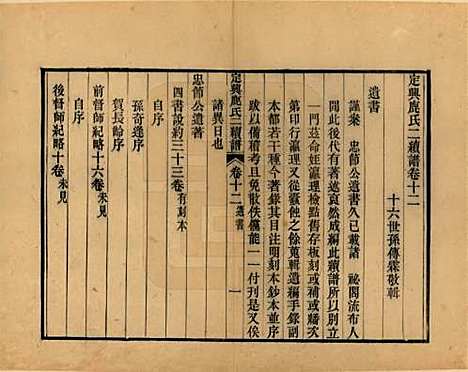 定興鹿氏二續譜卷十二
十六世孫傳霖敬輯
遺書
謹案　忠節公遺書久已載諸　祕閣流布人
間此後代有著述裒然成編此續譜所以別立
一門茲命姪瀛理檢點舊存板刻或補或續次
第印行瀛理又從蠹蝕之餘蒐輯遺稿手錄副
本都若干種今著錄其目注明刻本鈔本並序
跋以備稽考且免散佚儻能一一付刊是又俟
定興鹿氏二續譜　卷十二　遺書　一
諸異日也
忠節公遺著
四書說約三十三卷　有刻本
自序
孫奇逢序
賀長齡序
前督師紀略十六卷　未見
自序
後督師紀略十卷　未見